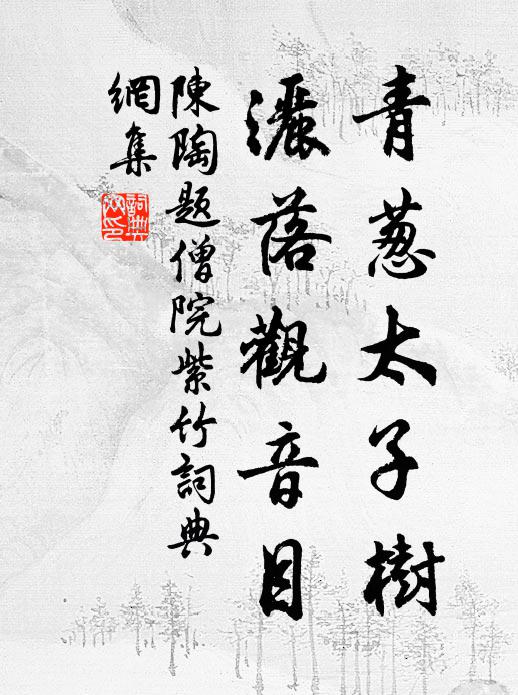 青葱太子樹
灑落觀音目
陳陶題僧院紫竹詞典
網集
詞典
網印